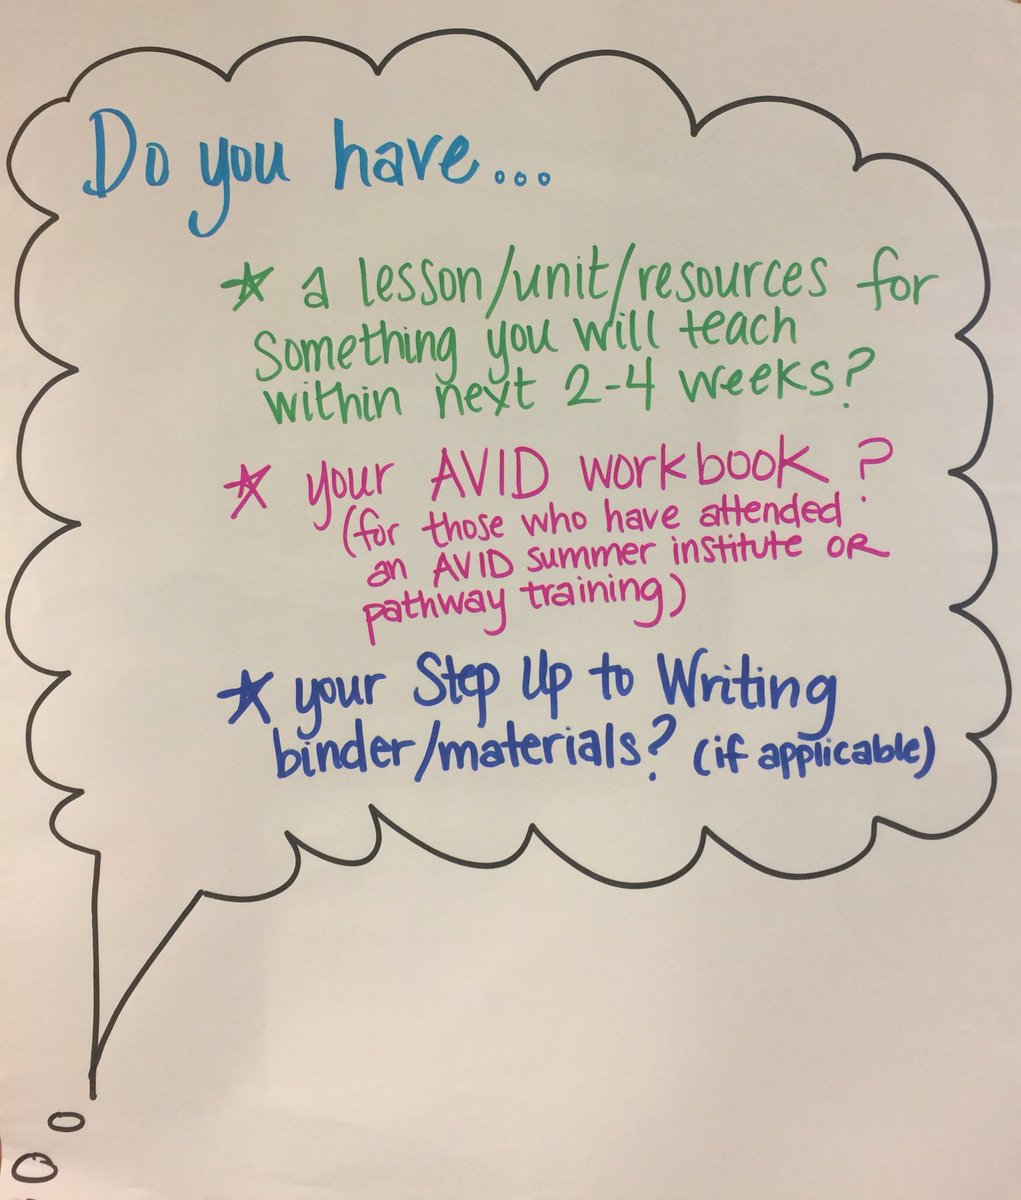 Do you have...
★ a lesson/unit/resources for
Something you will teach
within next 2-4 weeks?
★ your AVID workbook?
(for those who have attended
an AVID summer institute OR
pathway training)
★ your Step Up to Writing
binder/materials? (if applicable)